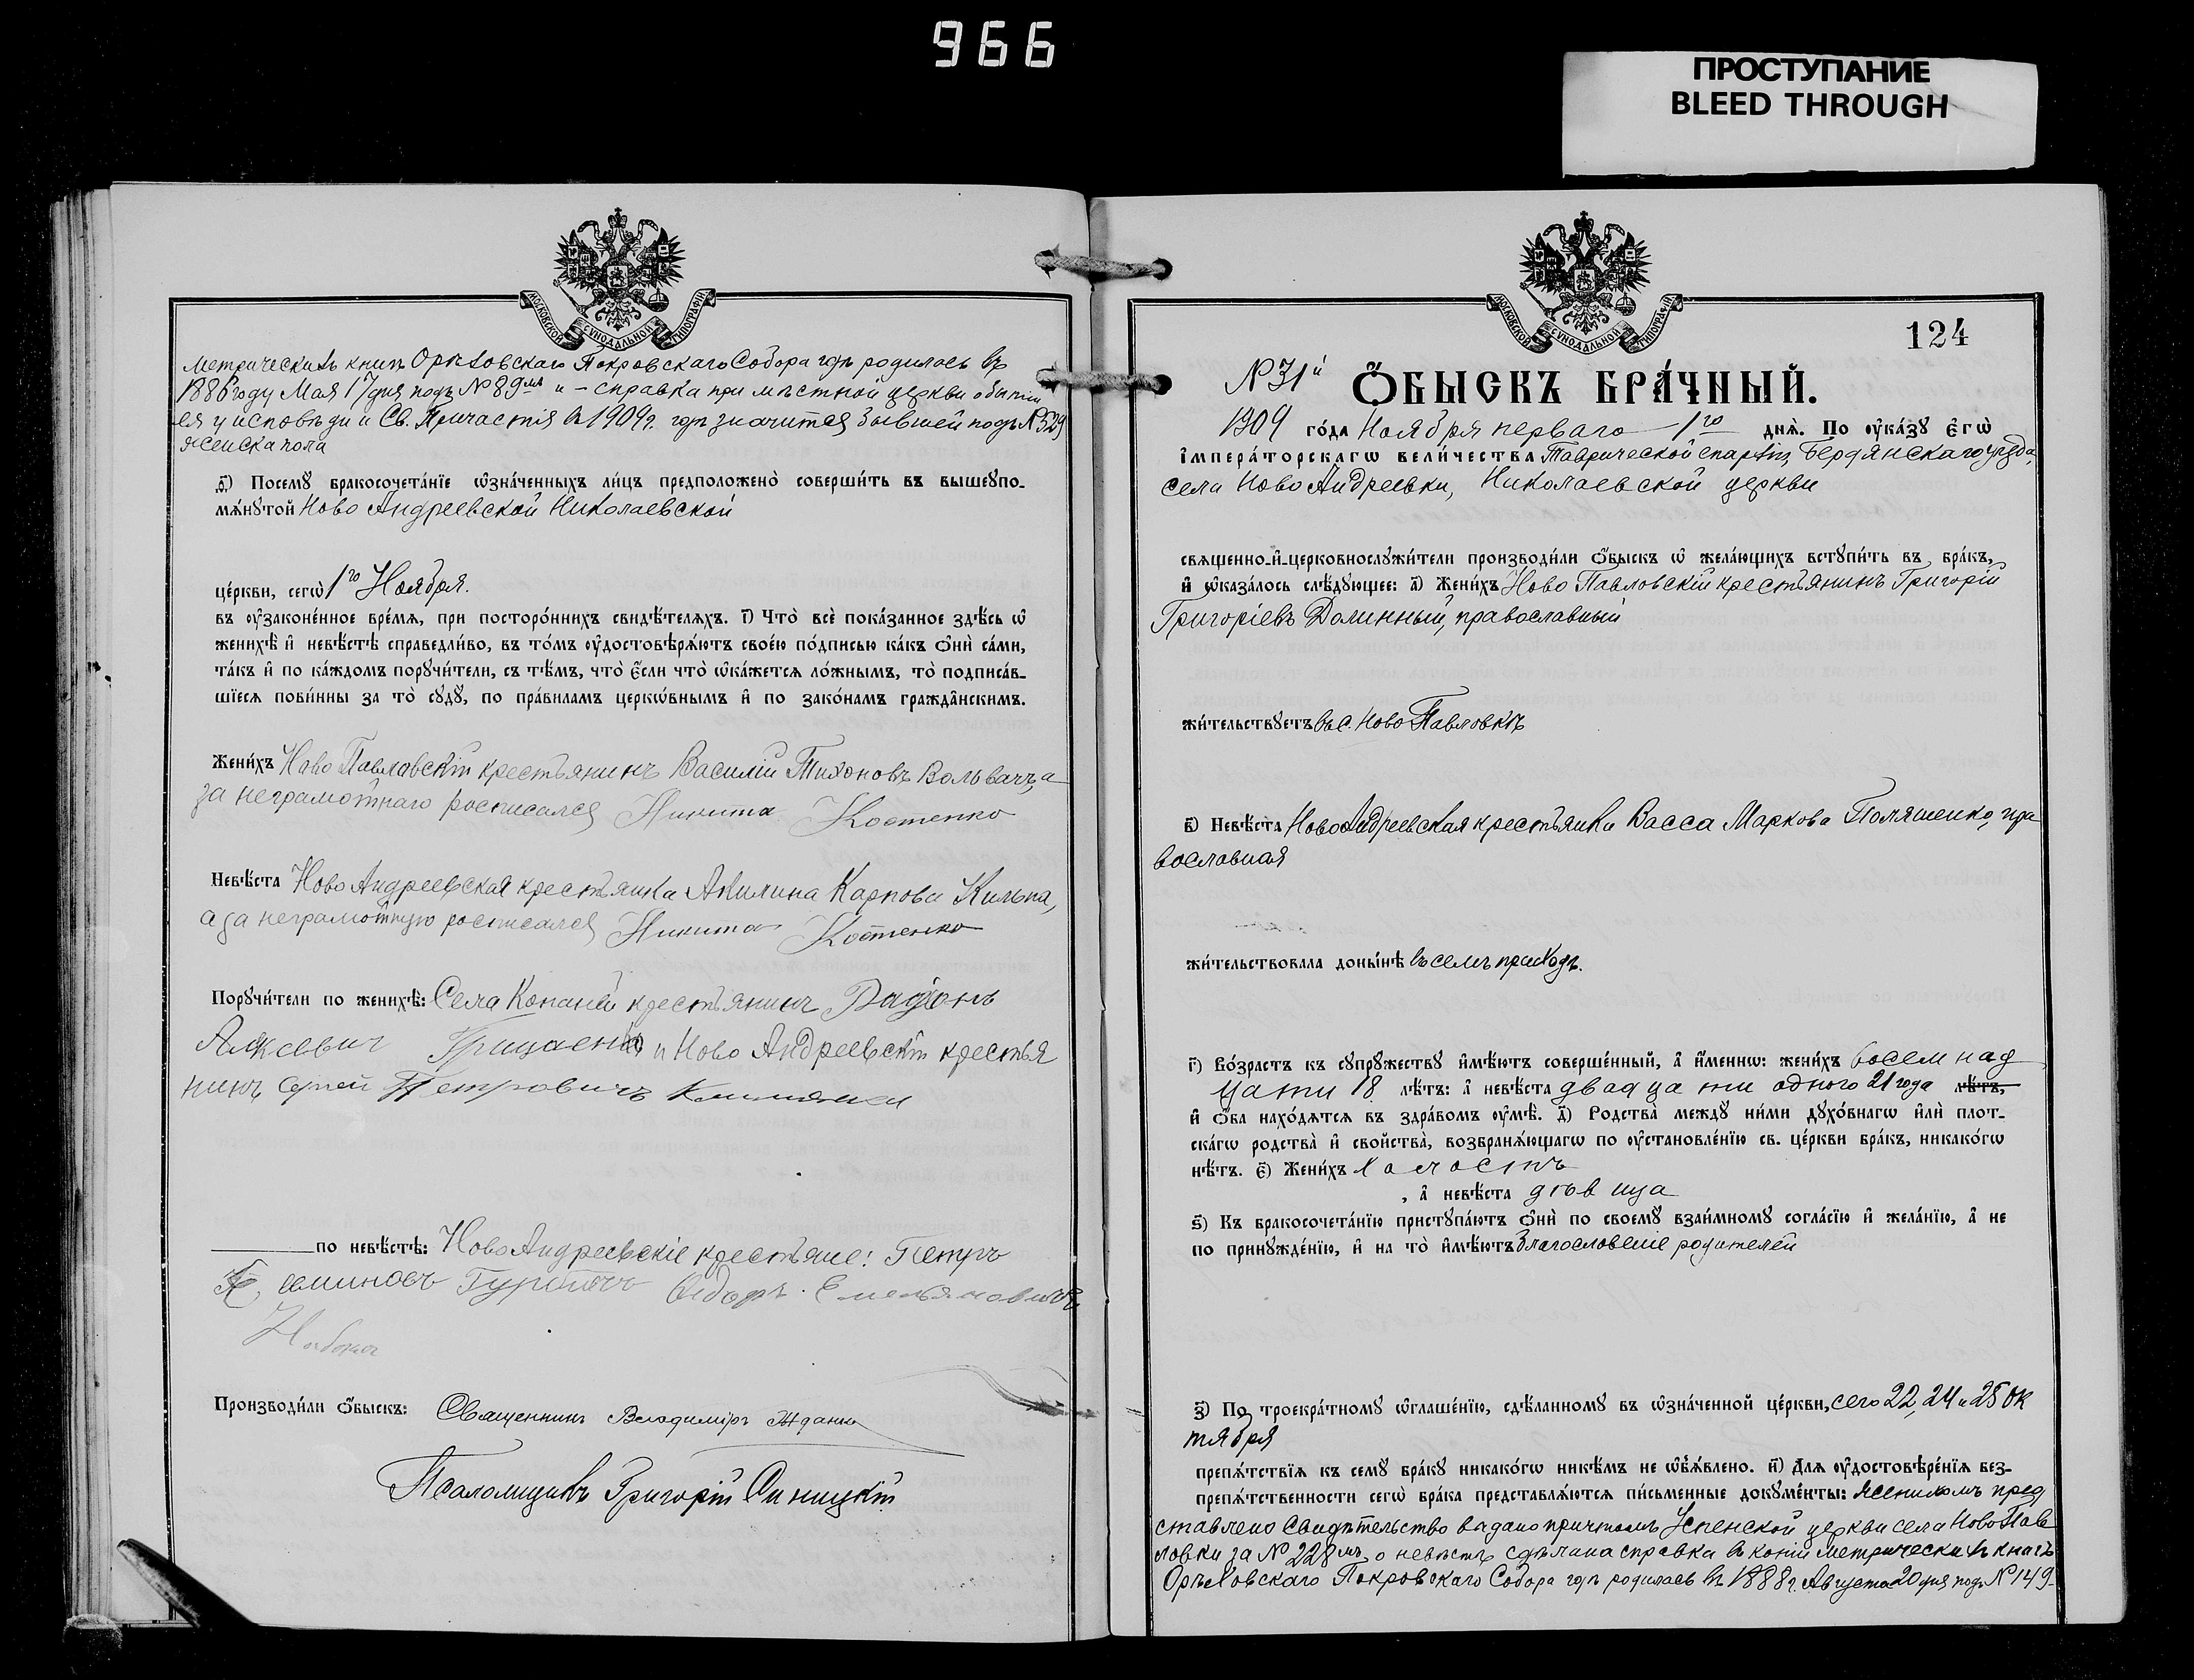 966
ПРОСТУПАНИЕ
BLEED THROUGH
МОСКОВСКОЙ СѴНОДАЛЬНОЙ ТИПОГРАФІИ
метрическихъ книгъ Орѣховскаго Покровскаго Собора гдѣ родилась въ
1886 году Мая 17 дня подъ № 89мъ и – справка при мѣстной церкви о бытіи
ея у исповѣди и Св. Причастія въ 1909 г. гдѣ значится бывшей подъ № 329
женска пола
д҃) Посемꙋ бракосочета́нїе ѡ҆зна́ченныхъ ли́цъ предположено̀ соверши́ть въ вышеꙋпо-
мѧ́нꙋтой Ново Андреевской Николаевской
це́ркви, сегѡ̀ 1го Ноября.
въ ᲂу҆законе́нное вре́мѧ, при посторо́ннихъ свидѣ́телѧхъ. і҃) Что̀ всѐ пока́занное здѣ́сь ѡ҆
женихѣ̀ и҆ невѣ́стѣ справедли́во, въ то́мъ ᲂу҆достовѣрѧ́ютъ свое́ю по́дписью ка́къ ѻ҆нѝ са́ми,
та́къ и҆ по ка́ждомъ порꙋчи́тели, съ тѣ́мъ, что̀ є҆́сли что̀ ѡ҆ка́жетсѧ ло́жнымъ, то̀ подписа́в-
шїесѧ пови́нны за то̀ сꙋдꙋ̀, по пра́виламъ церкѡ́внымъ и҆ по зако́намъ гражда̂нскимъ.
Жени́хъ Ново Павловскій крестьянинъ Василій Тихоновъ Вольвачъ, а
за неграмотнаго росписался Никита Костенко
Невѣ́ста Ново Андреевская крестьянка Акилина Карпова Кильпа,
а за неграмотную росписался Никита Костенко
Порꙋчи́тели по женихѣ̀: Села Копаней крестьянинъ Радіонъ
Алксевич Грицаенко и Ново Андреевскій крестья
нинъ Петровичъ
по невѣ́стѣ: Ново Андреевскіе крестьяне: Петръ
Федоръ Емельяновичъ
Производи́ли ѻ҆́быскъ: Священникъ Владиміръ Жданко
Псаломщикъ Григорій Синицкій
МОСКОВСКОЙ СѴНОДАЛЬНОЙ ТИПОГРАФІИ
124
№ 31й Ѻ҆́БЫСКЪ БРА́ЧНЫЙ.
1909 го́да Ноября перваго 1го днѧ̀. По ᲂу҆ка́зꙋ Є҆гѡ̀
і҆мпера́торскагѡ вели́чества Таврической епархіи, Бердянскаго уѣзда,
села Ново Андреевки, Николаевской церкви
свѧщенно-и҆-церковнослꙋжи́тели производи́ли ѻ҆́быскъ ѡ҆ жела́ющихъ встꙋпи́ть въ бра́къ,
и҆ ѡ҆каза́лось слѣ́дꙋющее: а҃) Жени́хъ Ново Павловскій крестьянинъ Григорій
Григоріевъ Долинный, православный
жи́тельствꙋетъ въ с. Ново Павловкѣ
в҃) Невѣ́ста Ново Андреевская крестьянка Васса Маркова Поляшенко, пра
вославная
жи́тельствовала доны́нѣ въ семъ приходѣ.
г҃) Во́зрастъ къ сꙋпрꙋ́жествꙋ и҆мѣ́ютъ соверше́нный, а҆ и҆́менно: жени́хъ восемнад
цати 18 лѣ́тъ: а҆ невѣ́ста двадцати одного 21 года лѣ́тъ,
и҆ ѻ҆́ба нахо́дѧтсѧ въ здра́вомъ ᲂу҆мѣ̀. д҃) Родства̀ междꙋ ни́ми дꙋхо́внагѡ и҆лѝ плот-
ска́гѡ родства̀ и҆ сво́йства, возбранѧ́ющагѡ по ᲂу҆становле́нїю св. це́ркви бра́къ, никако́гѡ
нѣ́тъ. є҃) Жени́хъ холостъ
, а҆ невѣ́ста дѣвица
ѕ҃) Къ бракосочета́нїю пристꙋпа́ютъ ѻ҆нѝ по своемꙋ̀ взаи́мномꙋ согла́сїю и҆ жела́нїю, а҆ не
по принꙋжде́нїю, и҆ на то̀ и҆мѣ́ютъ благословеніе родителей
з҃) По троекра́тномꙋ ѡ҆глаше́нїю, сдѣ́ланномꙋ въ ѡ҆зна́ченной це́ркви, сего 22, 24 и 25 Ок
тября
препѧ́тствїѧ къ семꙋ̀ бра́кꙋ никако́гѡ никѣ́мъ не ѡ҆б̾ѧ́влено. и҃) Длѧ ᲂу҆достовѣре́нїѧ без-
препѧ́тственности сегѡ̀ бра́ка представлѧ́ютсѧ пи́сьменные докꙋме́нты: женихомъ пред
ставлено Свидѣтельство выдано причтомъ Успенской церкви села Ново Пав
ловки за № 228мъ, о невѣстѣ сдѣлана справка въ копіи метрическихъ книгъ
Орѣховскаго Покровскаго Собора гдѣ родилась въ 1888 г. Августа 20 дня подъ № 149